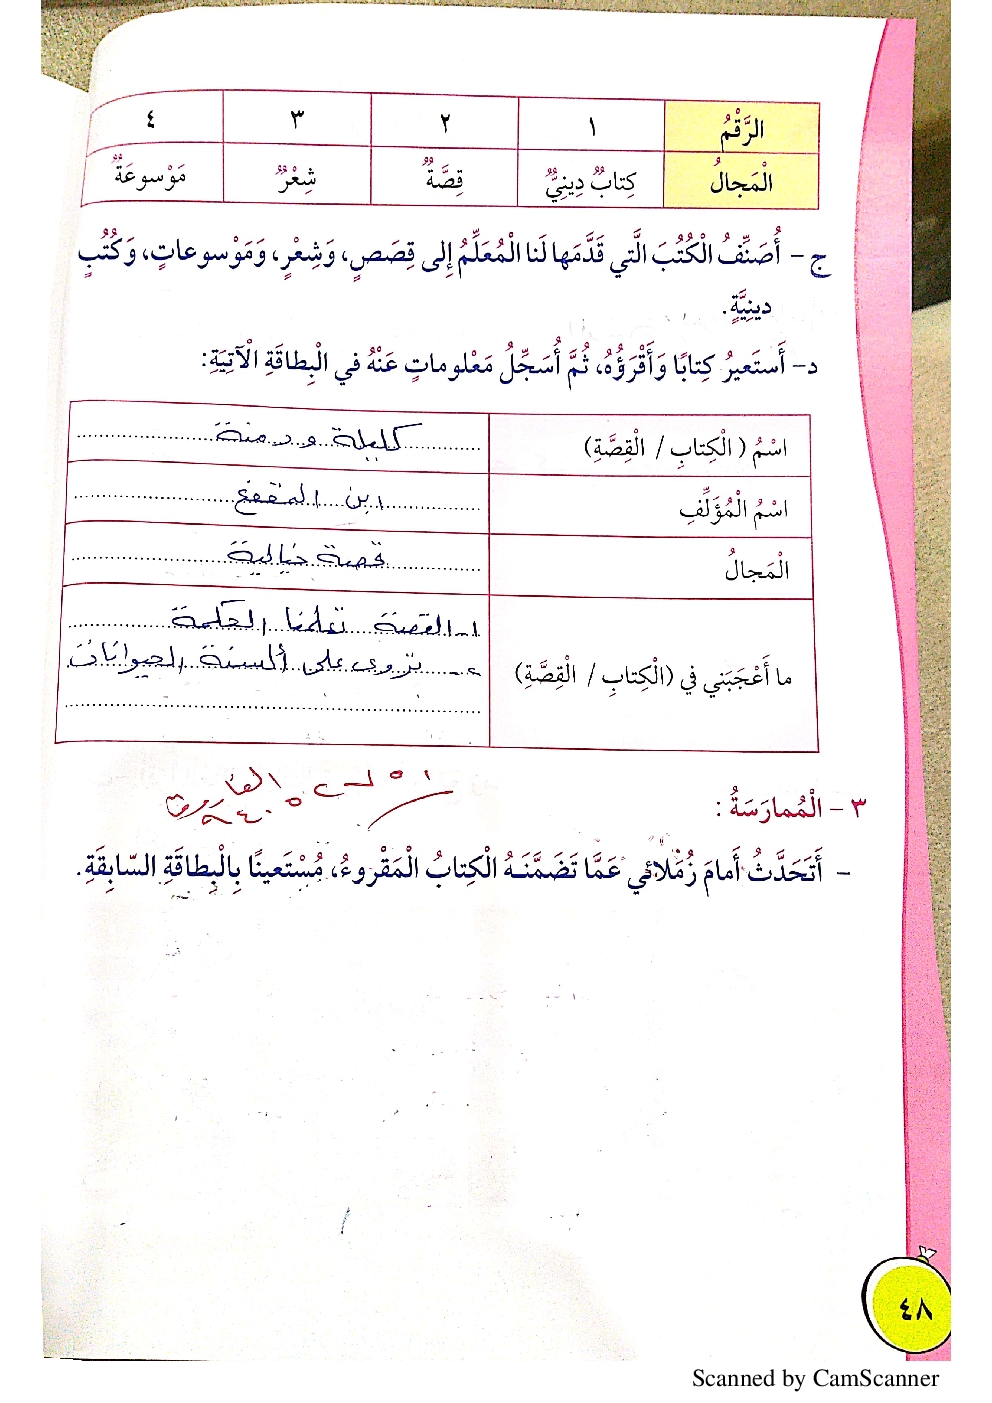 الرَّقْمُ ١ ٢ ٣ ٤
الْمَجالُ كِتابٌ دِينِيٌّ قِصَّةٌ شِعْرٌ مَوْسوعَةٌ
ج - أُصَنِّفُ الْكُتُبَ الَّتي قَدَّمَها لَنا الْمُعَلِّمُ إِلى قِصَصٍ، وَشِعْرٍ، وَمَوْسوعاتٍ، وَكُتُبٍ
دينِيَّةٍ.
د- أَسْتَعيرُ كِتابًا وَأَقْرَؤُهُ، ثُمَّ أُسَجِّلُ مَعْلوماتٍ عَنْهُ في الْبِطاقَةِ الْآتِيَةِ:
اسْمُ (الْكِتابِ / الْقِصَّةِ) كليلة ودمنة
اسْمُ الْمُؤَلِّفِ ابن المقفع
الْمَجالُ قصة خيالية
ما أَعْجَبَني في (الْكِتابِ / الْقِصَّةِ)
١- القصة تعلمنا الحكمة
٢- تروى على ألسنة الحيوانات
٣ - الْمُمارَسَةُ :
- أَتَحَدَّثُ أَمامَ زُمَلائي عَمَّا تَضَمَّنَهُ الْكِتابُ الْمَقْروءُ، مُسْتَعينًا بِالْبِطاقَةِ السّابِقَةِ.
٤٨
Scanned by CamScanner